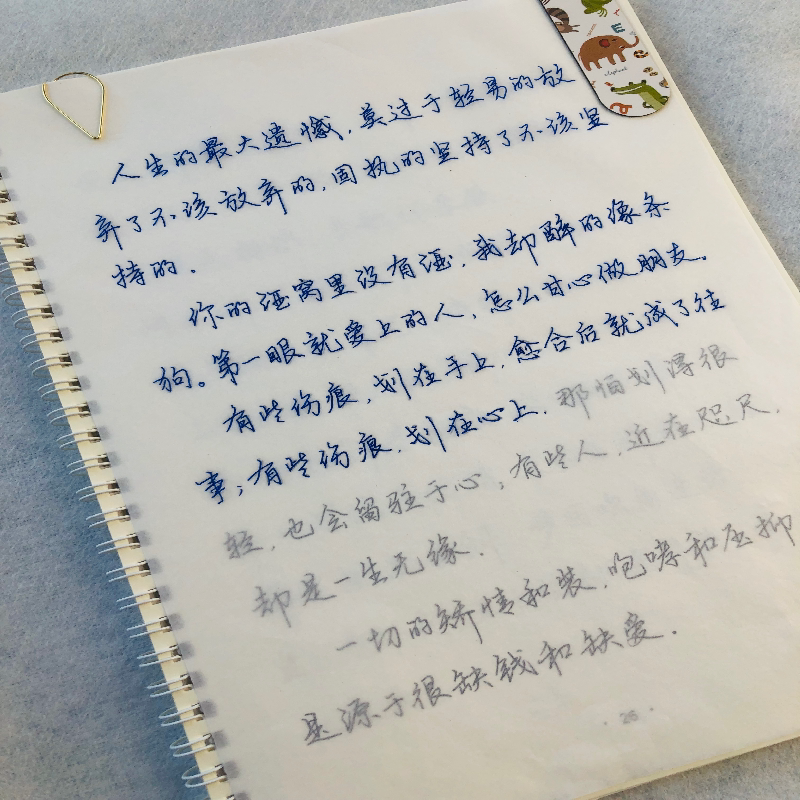 人生的最大遗憾，莫过于轻易的放
弃了不该放弃的，固执的坚持了不该坚
持的．
你的酒窝里没有酒，我却醉的像条
狗。第一眼就爱上的人，怎么甘心做朋友。
有些伤痕，划在手上，愈合后就成了往
事；有些伤痕，划在心上，那怕划得很
轻，也会留驻于心；有些人，近在咫尺，
却是一生无缘．
一切的矫情和装，咆哮和压抑
是源于很缺钱和缺爱．
· 26 ·